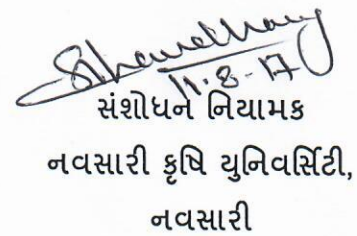 11.8-17
સંશોધન નિયામક
નવસારી કૃષિ યુનિવર્સિટી,
નવસારી